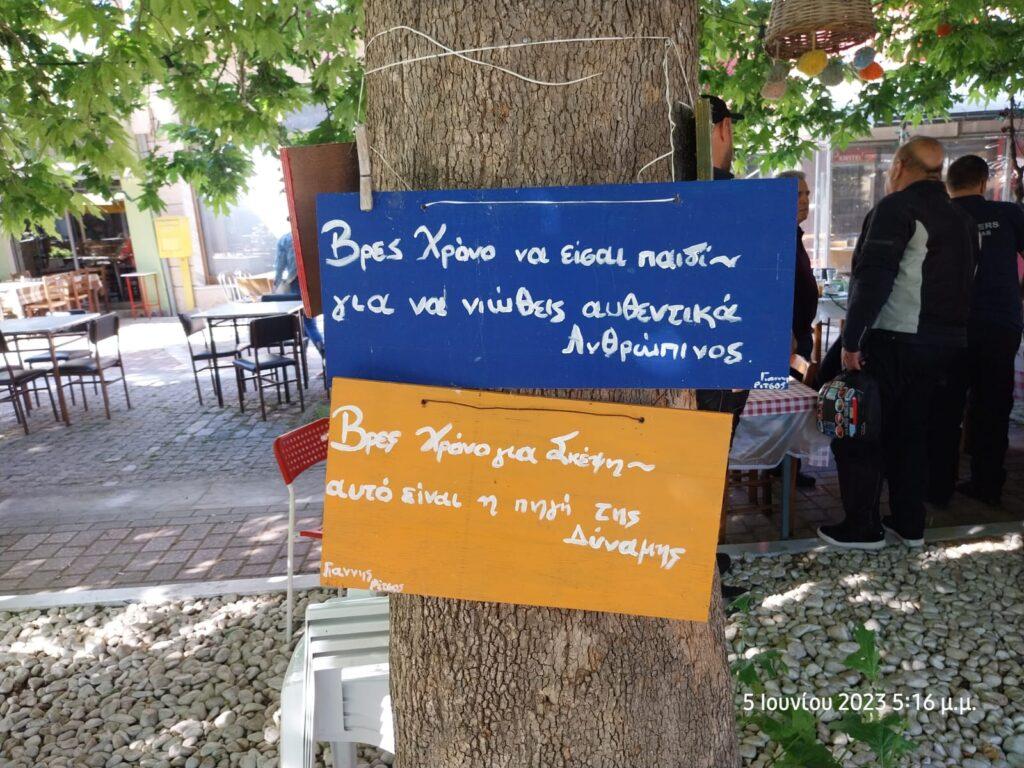 Βρες Χρόνο να είσαι παιδί~
για να νιώθεις αυθεντικά
Ανθρώπινος.
Γιαννης
Ρίτσος
Βρες Χρόνο για Σκέψη~
αυτό είναι η πηγή της
Δύναμης
Γιαννης
Ρίτσος
5 Ιουνίου 2023 5:16 μ.μ.